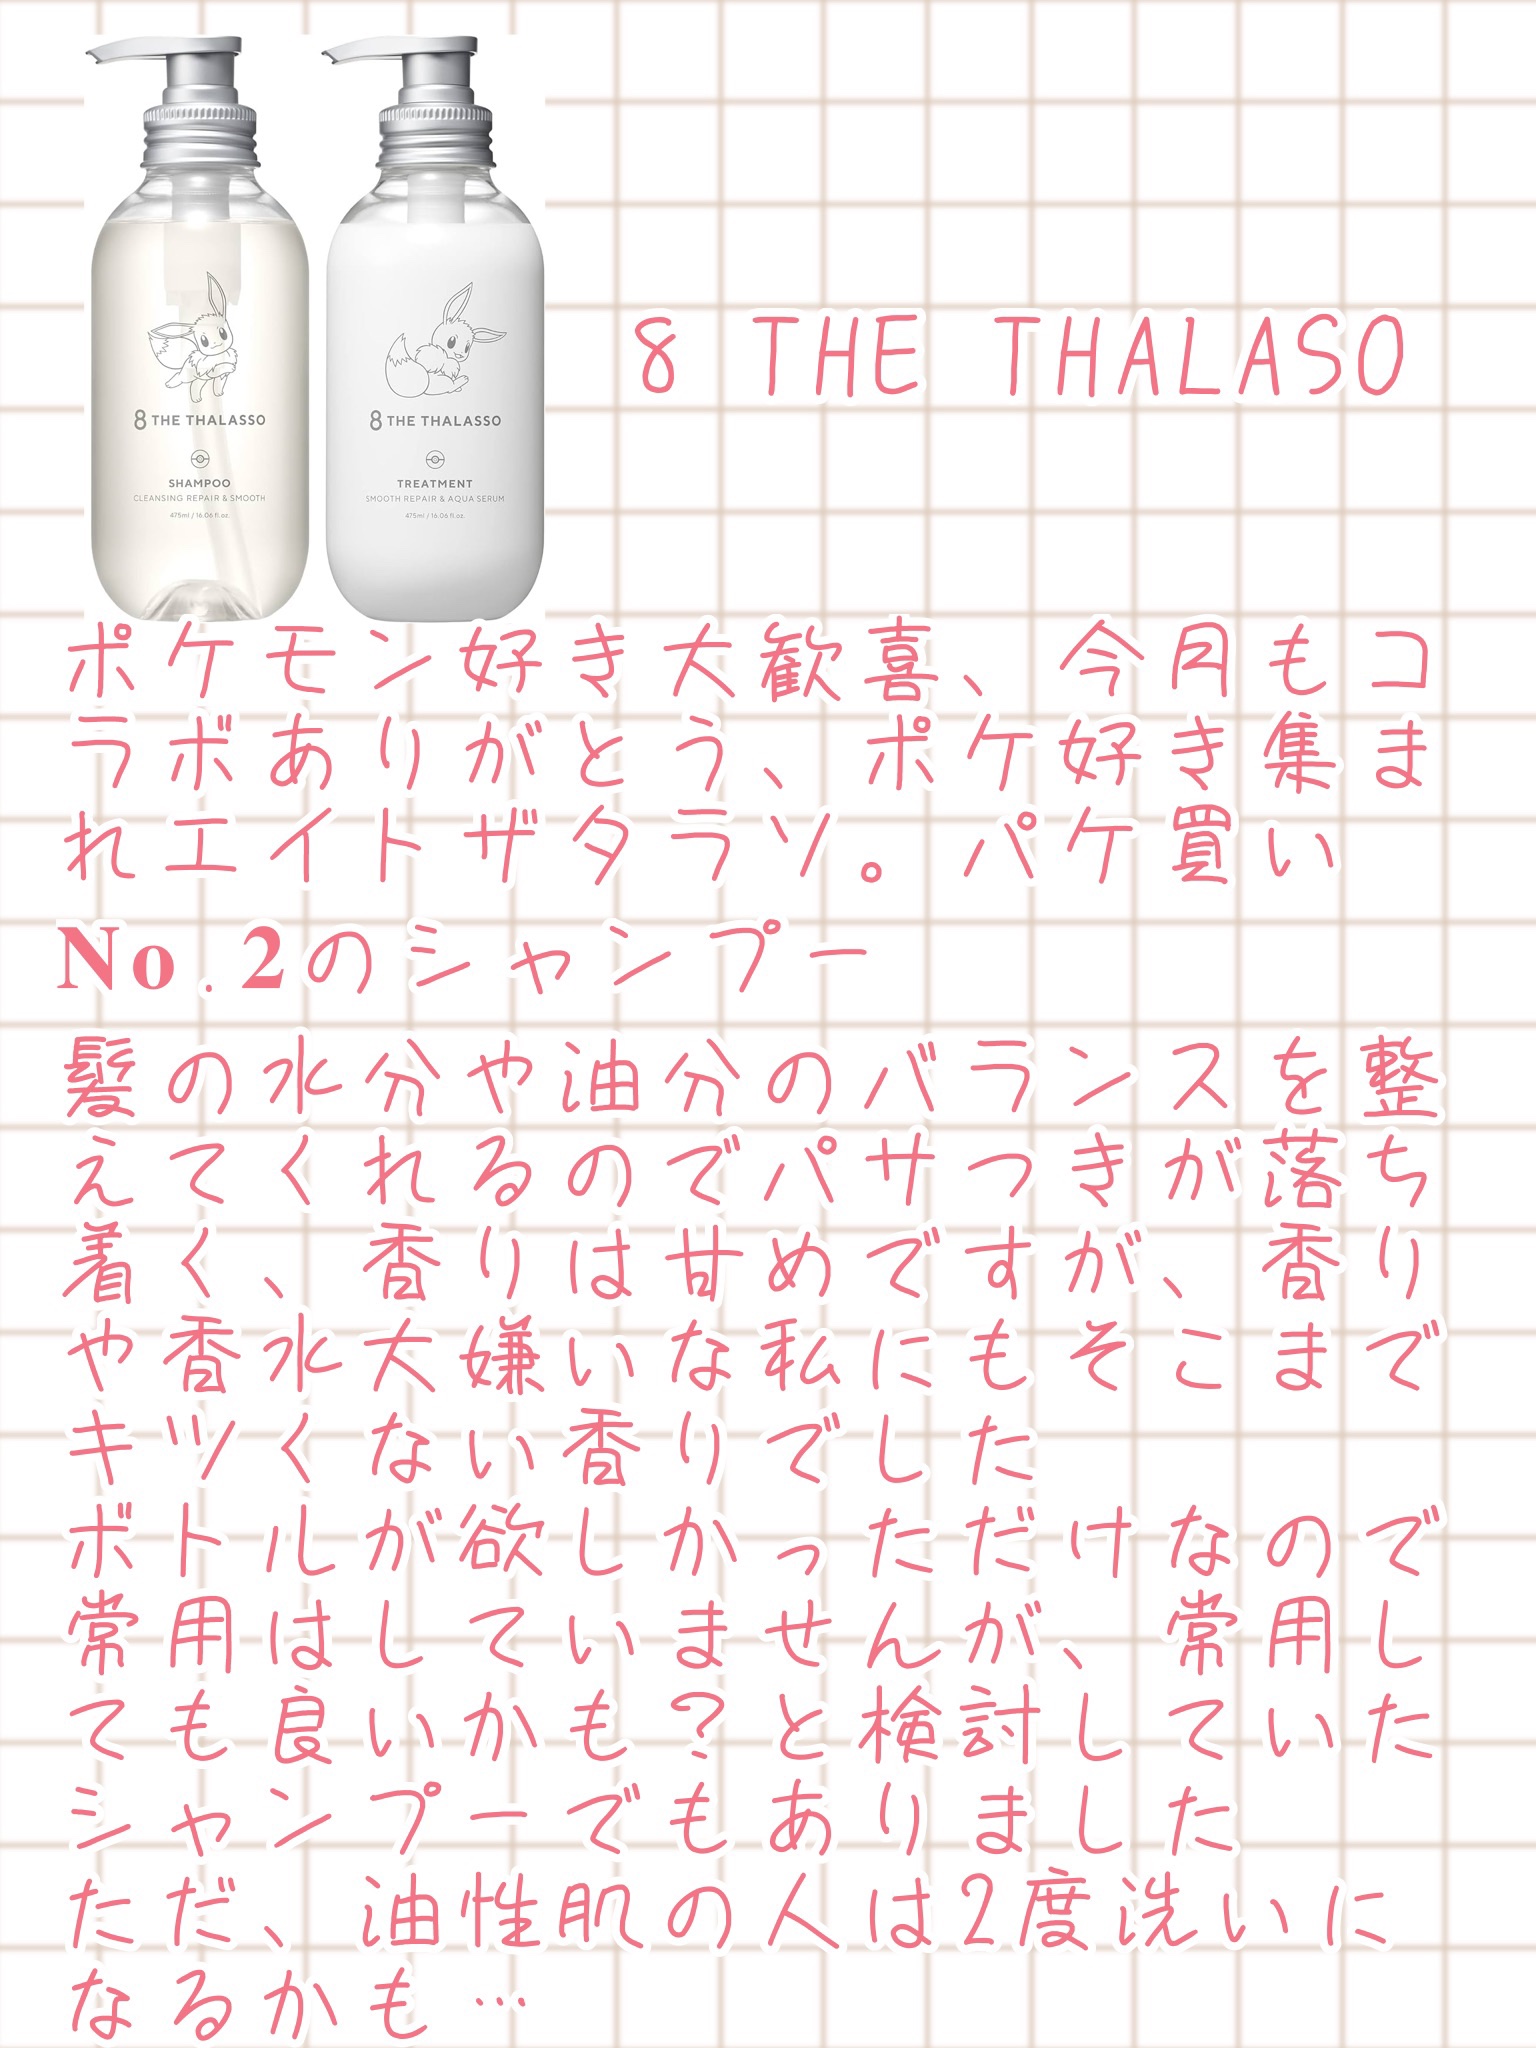 8 THE THALASSO
SHAMPOO
CLEANSING REPAIR & SMOOTH
475ml / 16.06 fl.oz.
8 THE THALASSO
TREATMENT
SMOOTH REPAIR & AQUA SERUM
475ml / 16.06 fl.oz.
8 THE THALASO
ポケモン好き大歓喜、今月もコ
ラボありがとう、ポケ好き集ま
れエイトザタラソ。パケ買い
No.2のシャンプー
髪の水分や油分のバランスを整
えてくれるのでパサつきが落ち
着く、香りは甘めですが、香り
や香水大嫌いな私にもそこまで
キツくない香りでした
ボトルが欲しかっただけなので
常用はしていませんが、常用し
ても良いかも?と検討していた
シャンプーでもありました
ただ、油性肌の人は2度洗いに
なるかも…